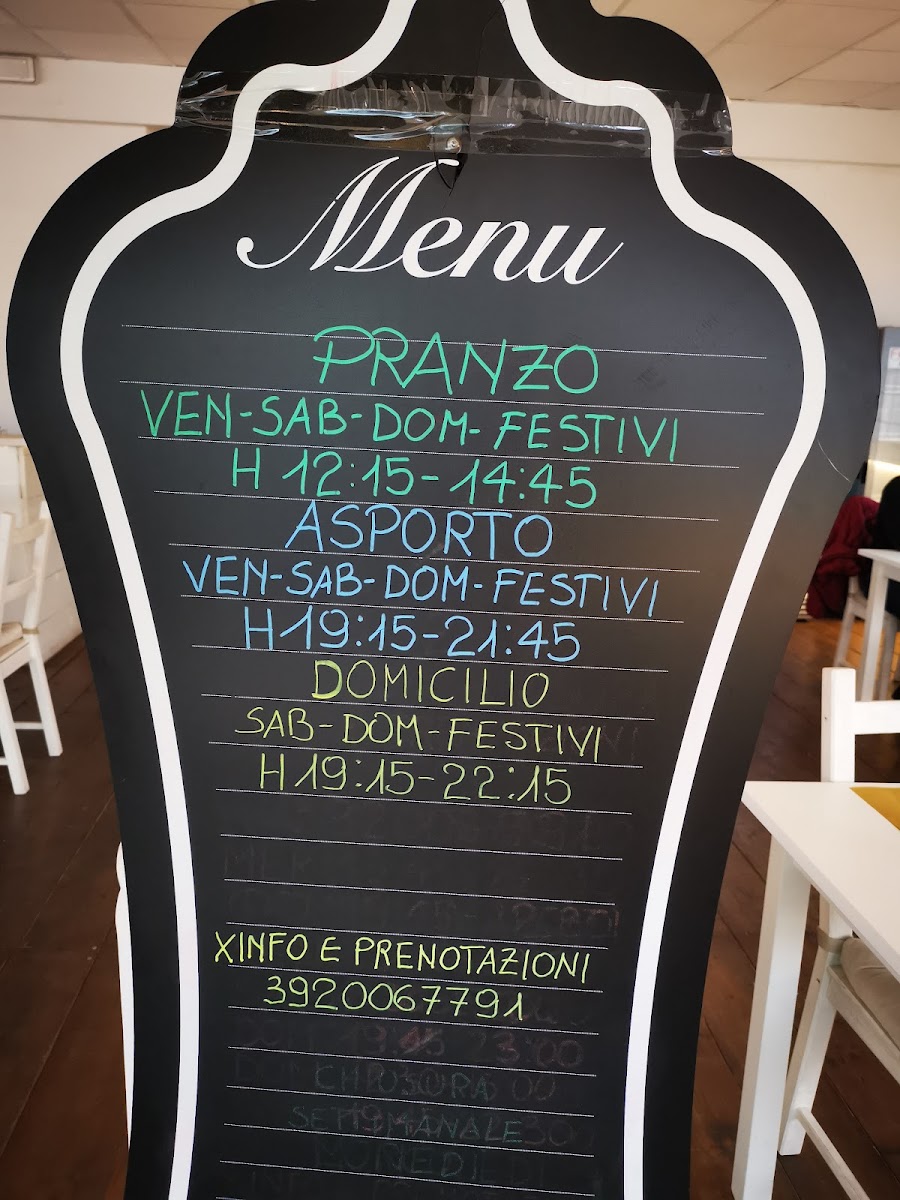 Menu
PRANZO
VEN-SAB-DOM-FESTIVI
H 12:15-14:45
ASPORTO
VEN-SAB-DOM-FESTIVI
H 19:15-21:45
DOMICILIO
SAB-DOM-FESTIVI
H 19:15-22:15
XINFO E PRENOTAZIONI
3920067791
CHIUSURA
SETTIMANALE